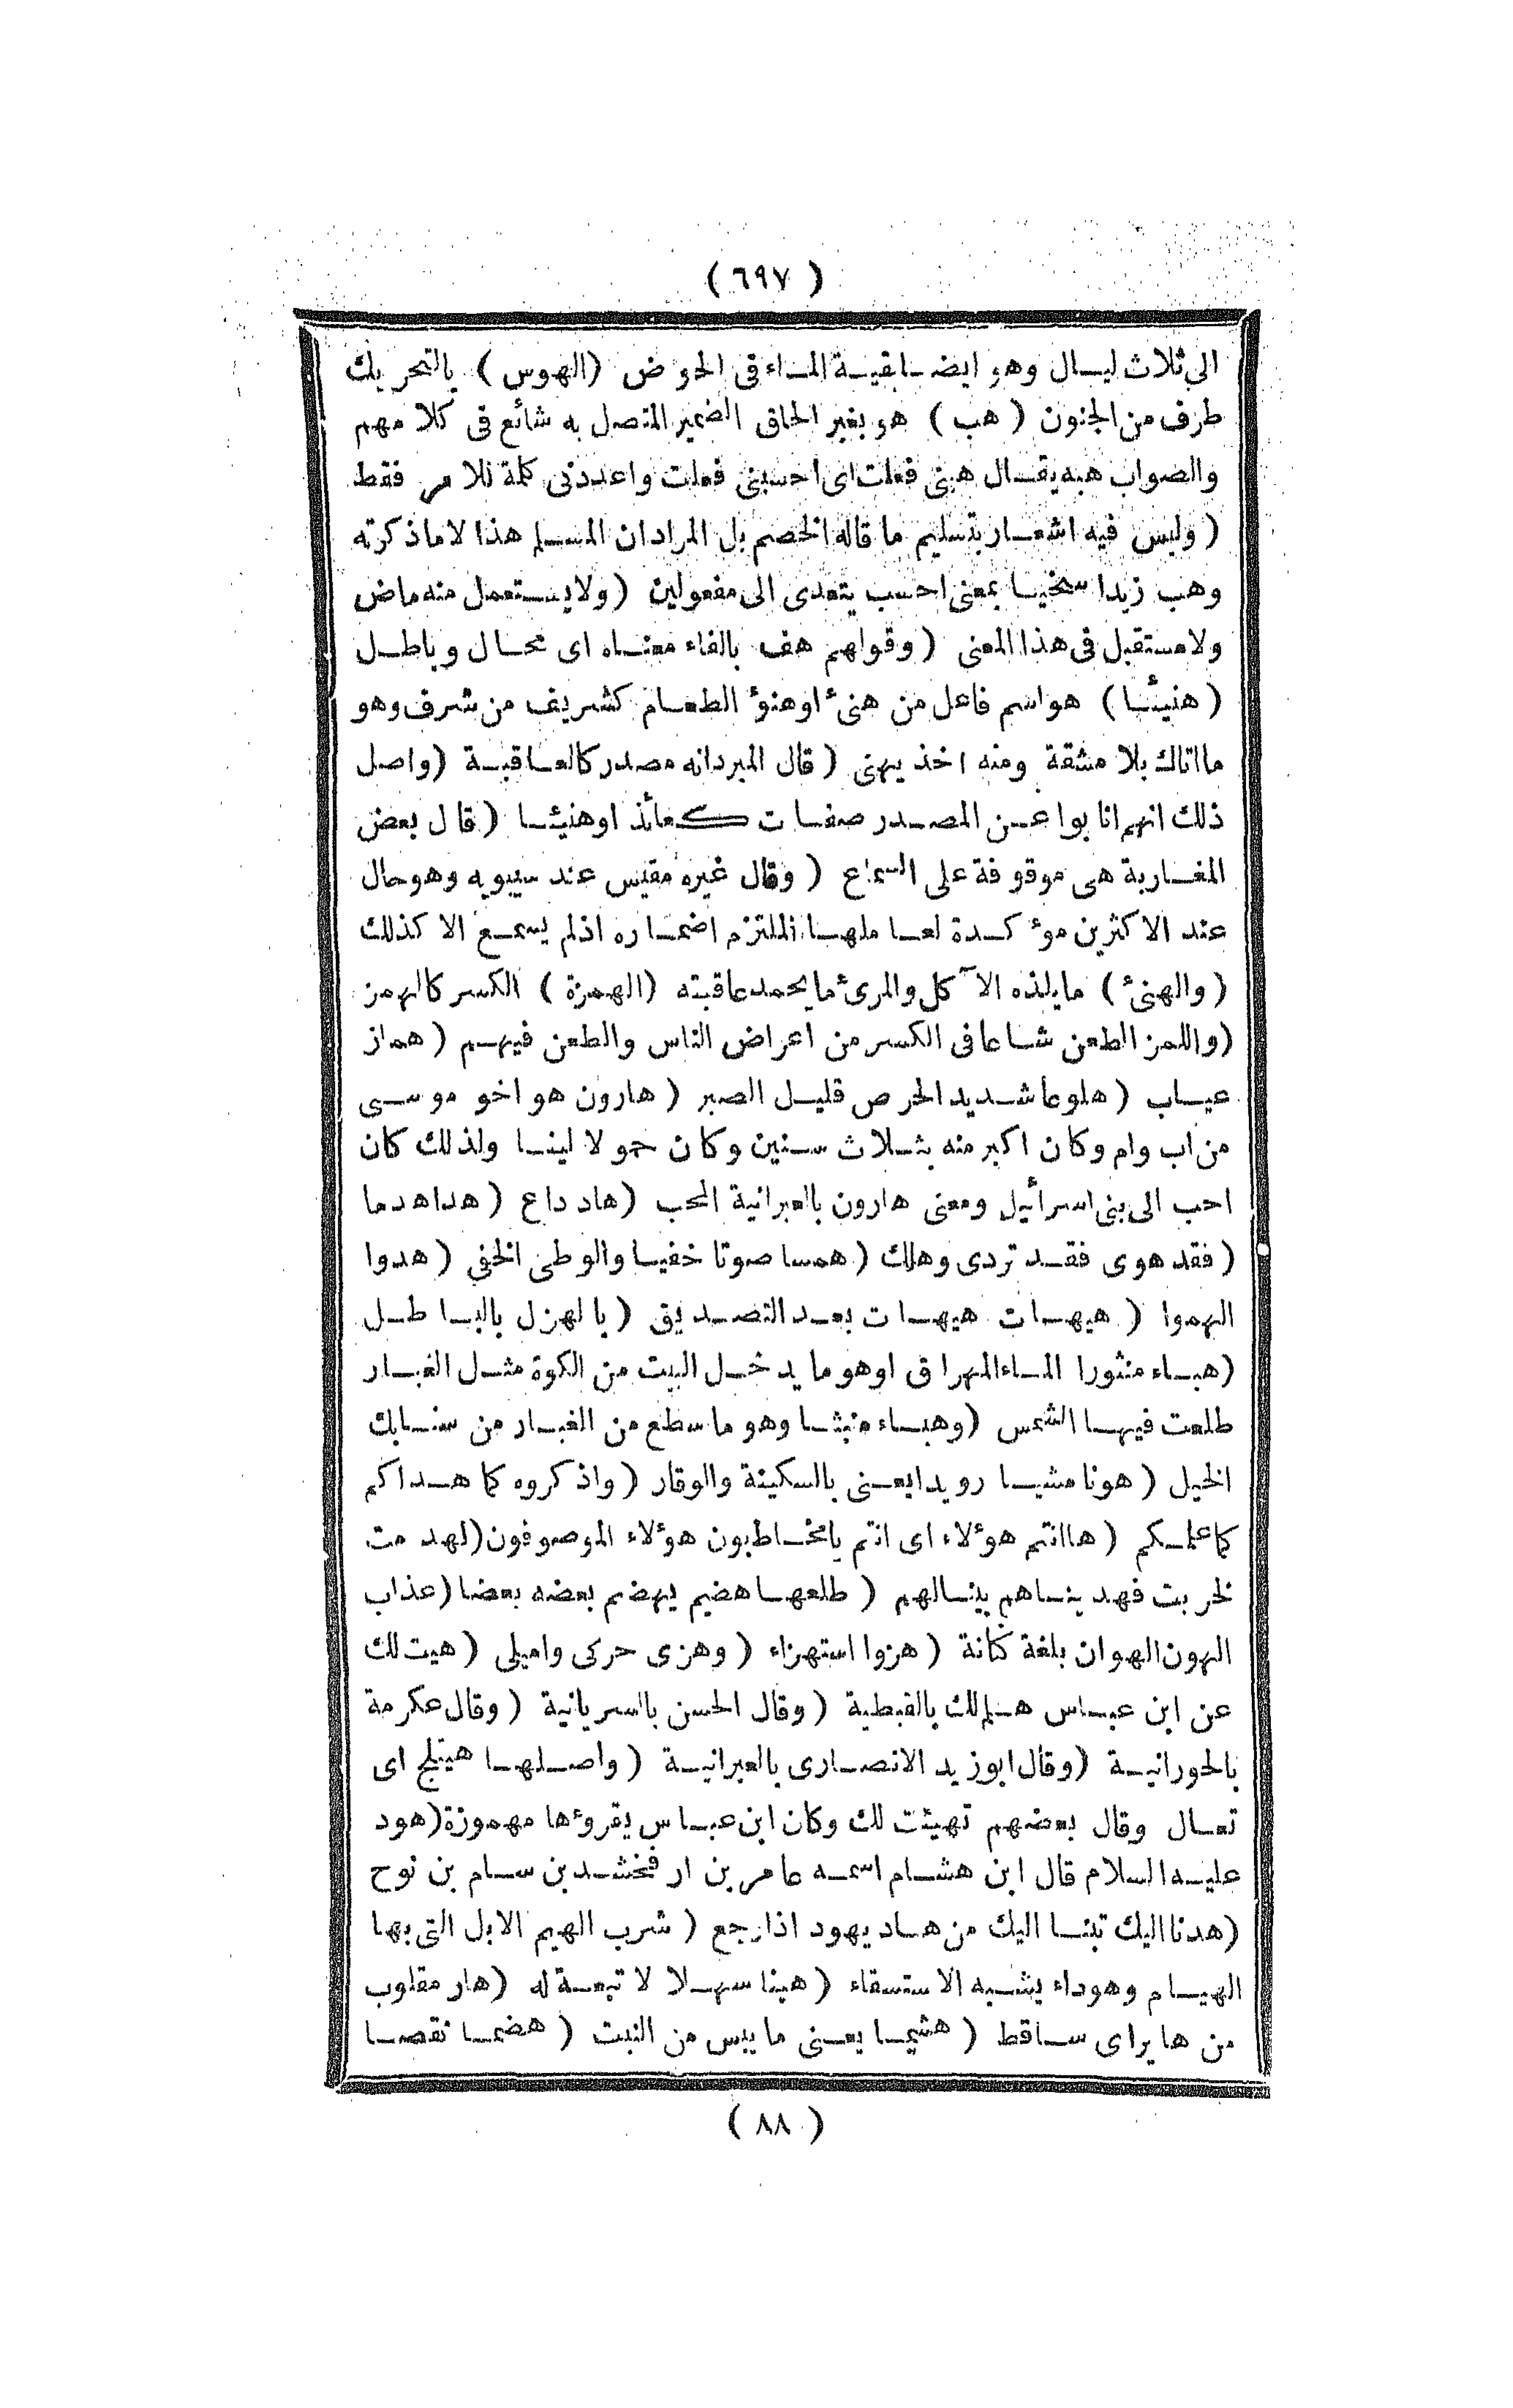 ( ٦٩٧ )
الى ثلاث ليال وهو ايضا بقية الماء فى الحوض (الهوس) بالتحريك
طرف من الجنون ( هب ) هو بغير الحاق الضمير المتصل به شائع فى كلامهم
والصواب هبه يقال هبنى فعلت اى احسبنى فعلت واعددنى كلمة للامر فقط
( وليس فيه اشعار بتسليم ما قاله الخصم بل المراد ان المسلم هذا لاما ذكرته
وهب زيدا سخيا بمعنى احسب يتعدى الى مفعولين (ولا يستعمل منه ماض
ولا مستقبل فى هذا المعنى ( وقولهم هف بالفاء معناه اى محال وباطل
( هنيئا ) هو اسم فاعل من هنئ او هنؤ الطعام كشريف من شرف وهو
ما اتاك بلا مشقة ومنه اخذ يهنى ( قال المبرد انه مصدر كالعاقبة (واصل
ذلك انهم انابوا عن المصدر صفات كعائذ او هنيئا ( قال بعض
المغاربة هى موقوفة على السماع ( وقال غيره مقيس عند سيبويه وهو حال
عند الاكثرين مؤكدة لعاملها الملتزم اضماره اذ لم يسمع الا كذلك
( والهنئ ) ما يلذه الآكل والمرئ ما يحمد عاقبته (الهمزة ) الكسر كالهمز
(واللمز الطعن شاعا فى الكسر من اعراض الناس والطعن فيهم ( هماز
عياب ( هلوعا شديد الحرص قليل الصبر ( هارون هو اخو موسى
من اب وام وكان اكبر منه بثلاث سنين وكان حمولا لينا ولذلك كان
احب الى بنى اسرائيل ومعنى هارون بالعبرانية المحب (هاد داع ( هدا هدما
( فقد هوى فقد تردى وهلك ( همسا صوتا خفيا والوطى الخفى ( هدوا
الهموا ( هيهات هيهات بعد التصديق ( بالهزل بالباطل
(هباء منثورا الماء المهراق او هو ما يدخل البيت من الكوة مثل الغبار
طلعت فيها الشمس (وهباء منبثا وهو ما سطع من الغبار من سنابك
الخيل ( هونا مشيا رويدا يعنى بالسكينة والوقار ( واذكروه كما هداكم
كما علمكم ( ها انتم هؤلاء اى انتم يا مخاطبون هؤلاء الموصوفون (لهدمت
لخربت فهديناهم بينالهم ( طلعها هضيم يهضم بعضه بعضا (عذاب
الهون الهوان بلغة كنانة ( هزوا استهزاء ( وهزى حركى واميلى ( هيت لك
عن ابن عباس هلم لك بالقبطية ( وقال الحسن بالسريانية ( وقال عكرمة
بالحورانية (وقال ابو زيد الانصارى بالعبرانية ( واصلها هيتلج اى
تعال وقال بعضهم تهيئت لك وكان ابن عباس يقرؤها مهموزة (هود
عليه السلام قال ابن هشام اسمه عامر بن ارفخشد بن سام بن نوح
(هدنا اليك تبنا اليك من هاد يهود اذا رجع ( شرب الهيم الابل التى بها
الهيام وهو داء يشبه الاستسقاء ( هينا سهلا لا تبعة له (هار مقلوب
من هاير اى ساقط ( هشيما يعنى ما يبس من النبت ( هضما نقصا
( ٨٨ )